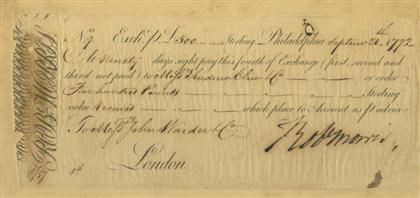 No. 9 Exch. for £500 Sterling Philadelphia Septem 26th 1792
At ninety days sight pay this fourth of Exchange (first, second and
third not paid) to Messrs Andrew Clow & Co or order
Five hundred Pounds Sterling
value Received which place to Account as pr advice
To Messrs John Warder & Co
London
4th
Rob Morris
ROBT MORRIS